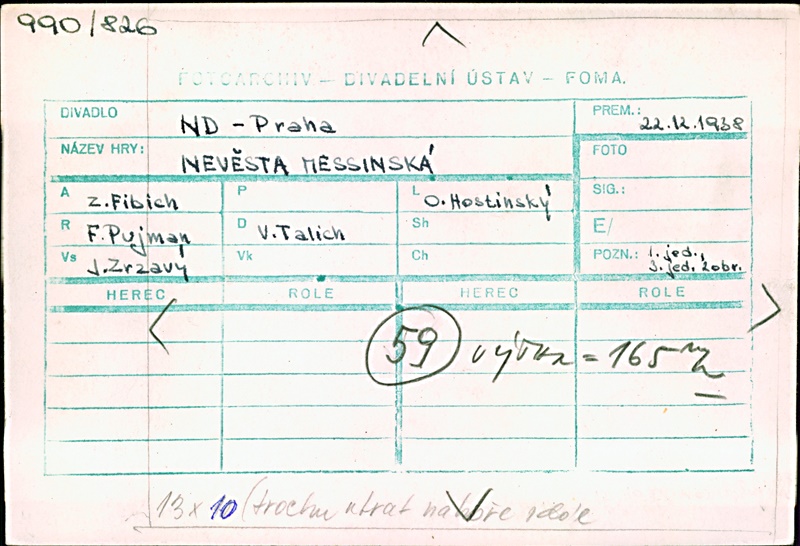 990/826
FOTOARCHIV – DIVADELNÍ ÚSTAV – FOMA.
DIVADLO ND - Praha PREM.: 22.12.1938
NÁZEV HRY: NEVĚSTA MESSINSKÁ FOTO
A Z. Fibich P L O. Hostinský SIG.:
R F. Pujman D V. Talich Sh E/
Vs J. Zrzavý Vk Ch POZN.: 1. jed., 3. jed. 2 obr.
HEREC ROLE HEREC ROLE
59 výška = 165
13 x 10 (trochu utrat nahoře